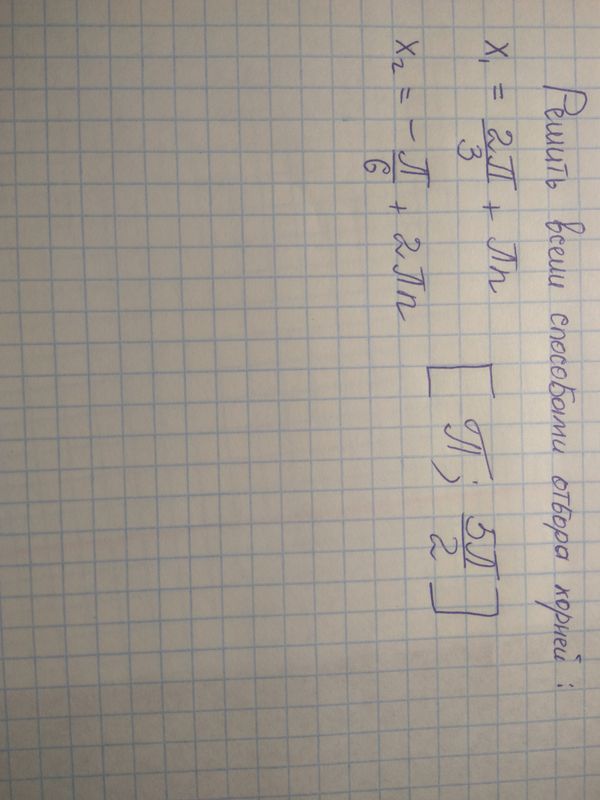 Решить всеми способами отбора корней:
x₁ = 2π/3 + πn
x₂ = -π/6 + 2πn [π; 5π/2]